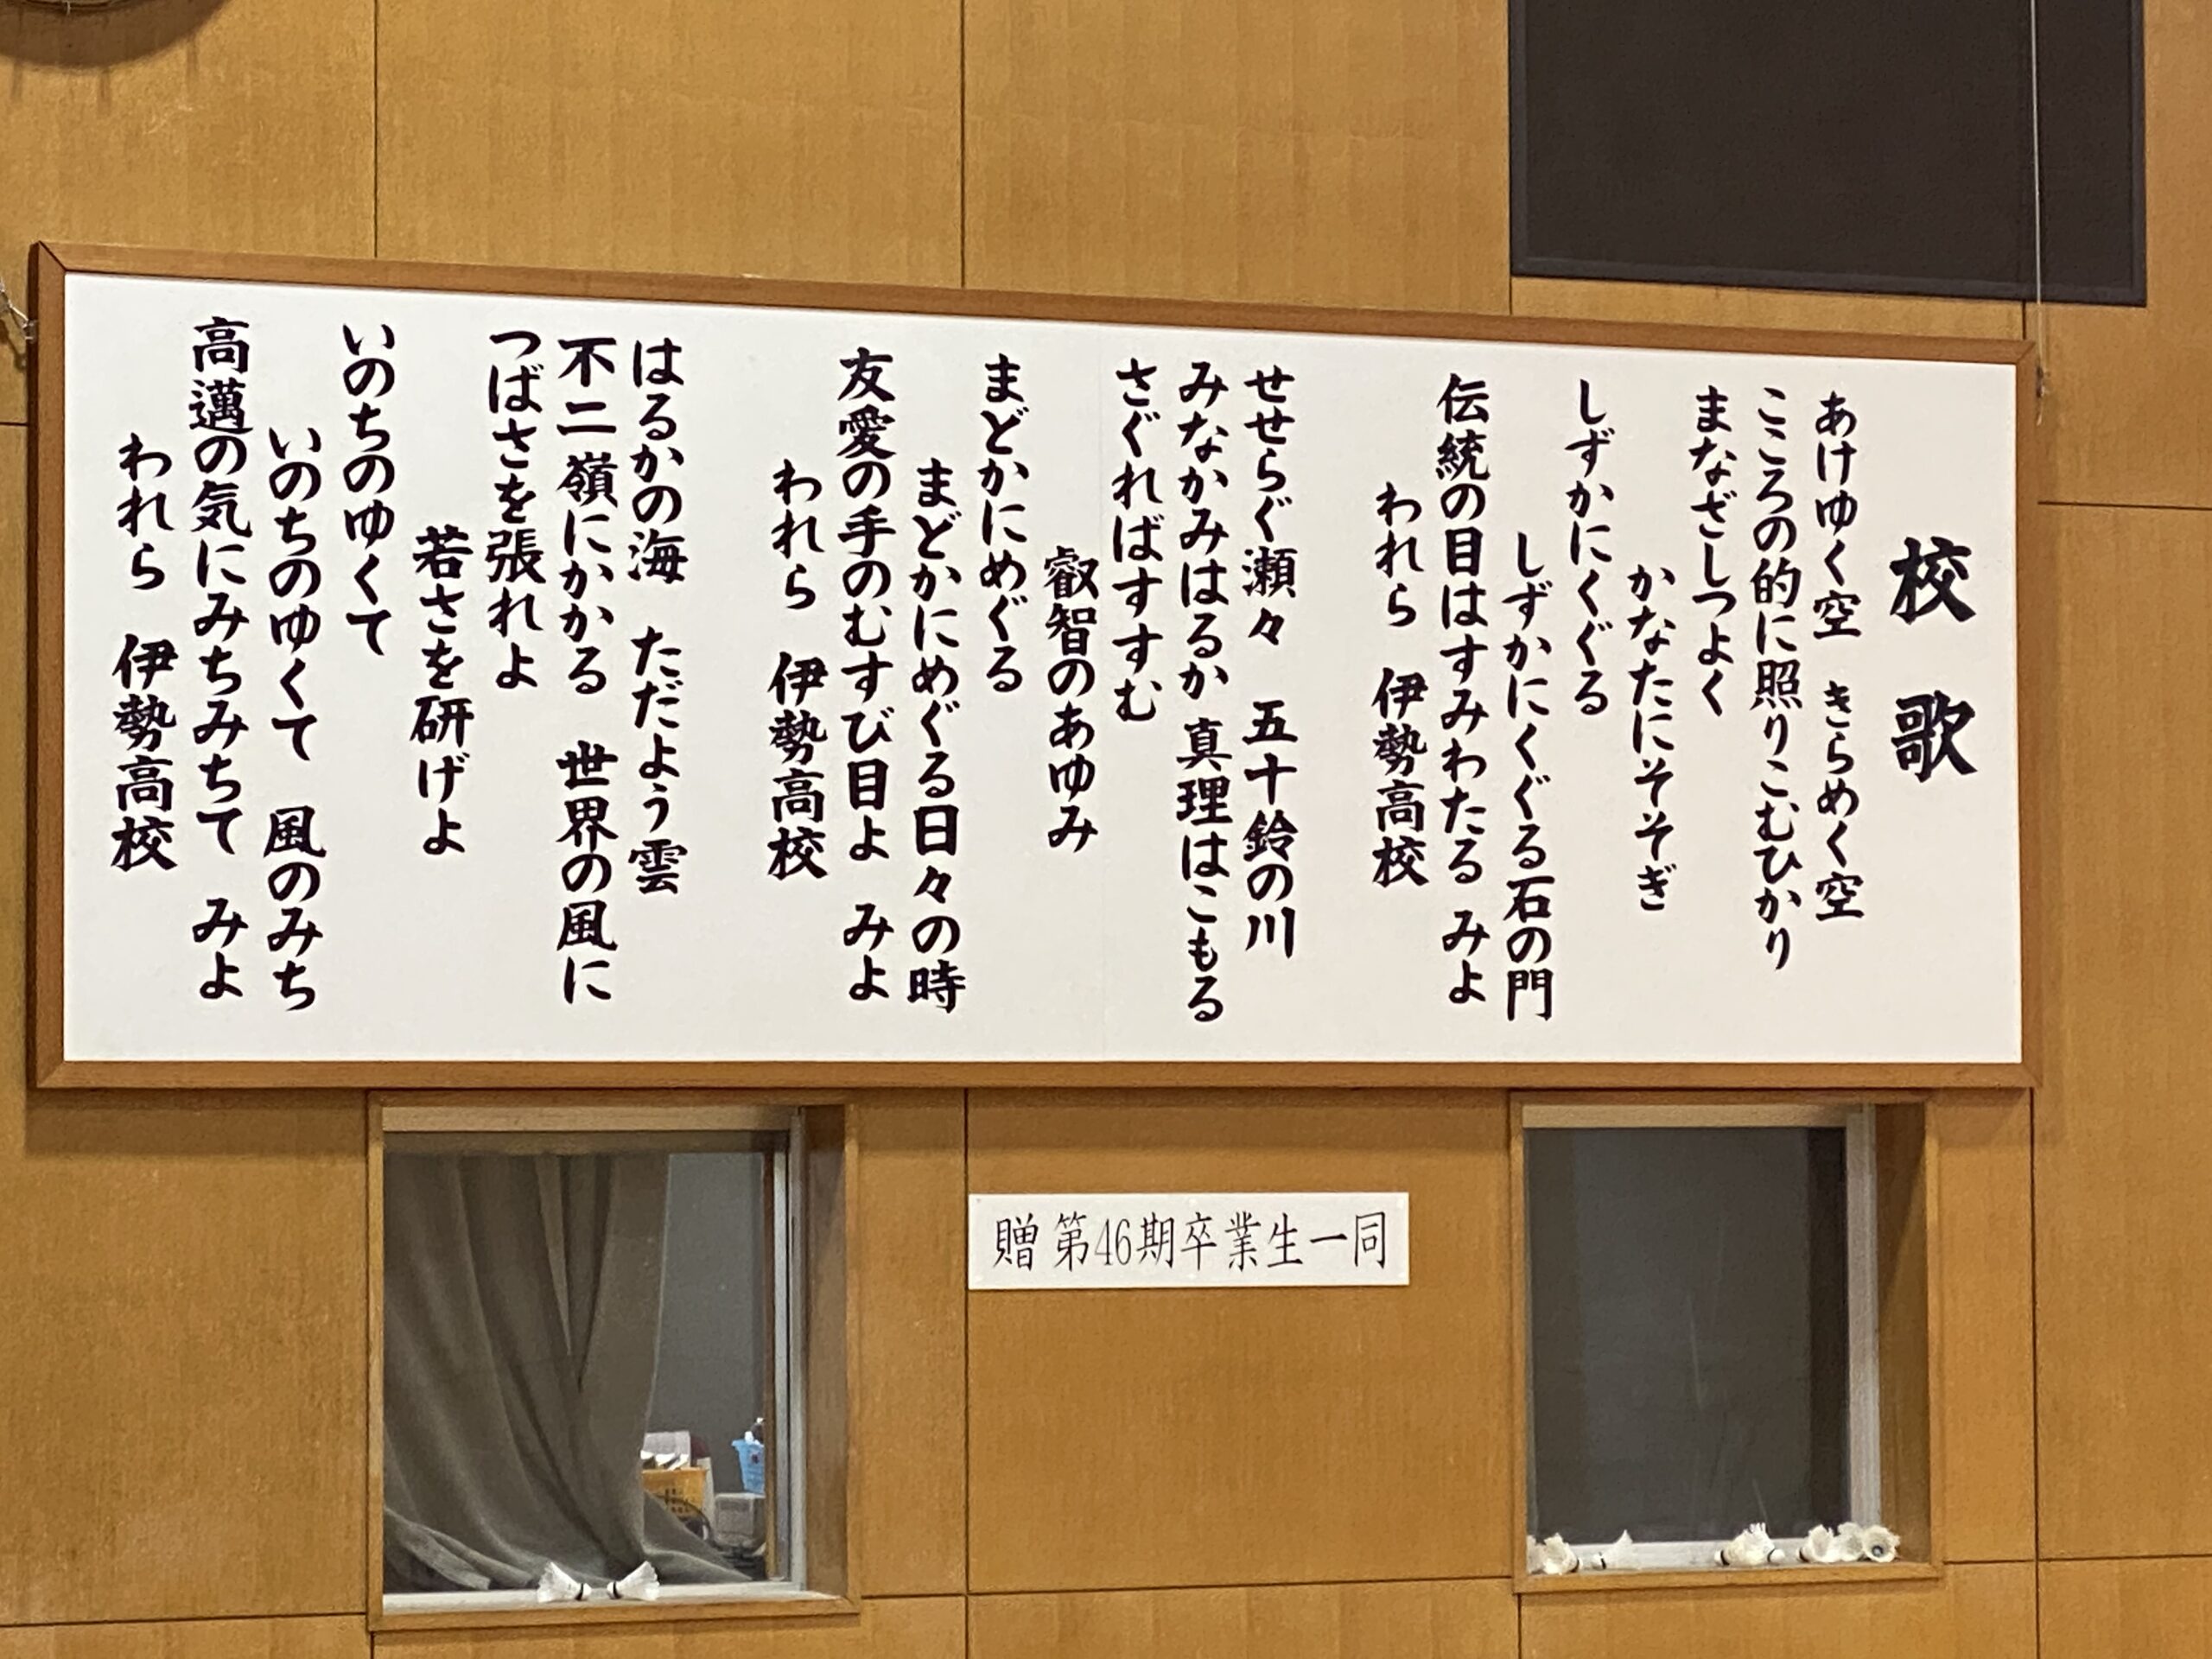 校歌
あけゆく空　きらめく空
こころの的に照りこむひかり
まなざしつよく
かなたにそそぎ
しずかにくぐる
しずかにくぐる石の門
伝統の目はすみわたる　みよ
われら　伊勢高校
せせらぐ瀬々　五十鈴の川
みなかみはるか　真理はこもる
さぐればすすむ
叡智のあゆみ
まどかにめぐる
まどかにめぐる日々の時
友愛の手のむすび目よ　みよ
われら　伊勢高校
はるかの海　ただよう雲
不二嶺にかかる　世界の風に
つばさを張れよ
若さを研げよ
いのちのゆくて
いのちのゆくて　風のみち
高邁の気にみちみちて　みよ
われら　伊勢高校
贈 第46期卒業生一同